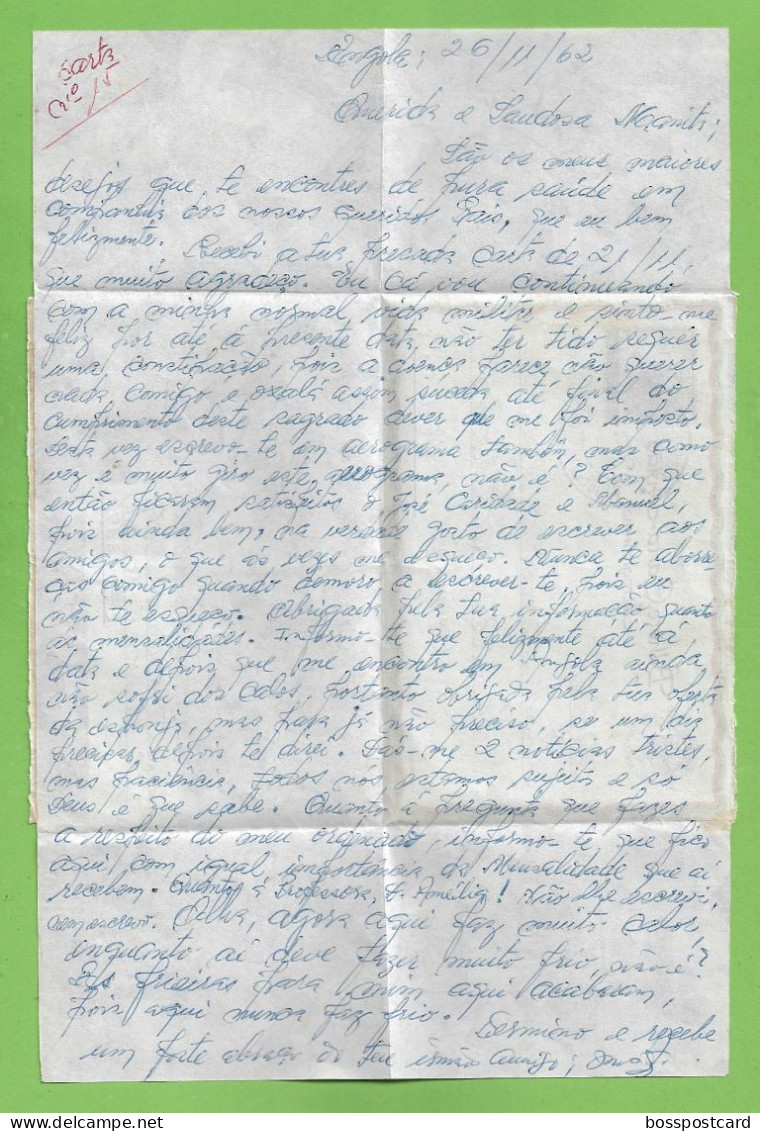 Carta
nº 15
Angola, 26/11/62
Querida e Saudosa Manita;
São os meus maiores
desejos que te encontres de pura saúde em
companhia dos nossos queridos Pais, que eu bem
felizmente. Recebi a tua prezada carta de 21/11,
que muito agradeço. Eu cá vou continuando
com a minha normal vida militar e sinto-me
feliz por até á presente data não ter tido sequer
uma constipação, pois a doença parece não querer
nada comigo e oxalá assim suceda até final do
cumprimento deste sagrado dever que me foi imposto.
Desta vez escrevo-te em aerograma também, mas como
vez e muito giro este, aerograma, não é? Com que
então ficaram satisfeitos o José Caridade e Manuel,
pois ainda bem, na verdade gosto de escrever aos
amigos, o que ás vezes me esqueço. Nunca te aborre-
ças comigo quando demoro a escrever-te, pois eu
não te esqueço. Obrigada pela tua informação quanto
as mensalidades. Informo-te que felizmente até á
data e depois que me encontro em Angola ainda
não sofri dos calos, portanto obrigada pela tua oferta
da esponja, mas para já não preciso, se um dia
precisar, depois te direi. Dás-me 2 noticias tristes,
mas paciencia, todos nos estamos sujeitos e só
Deus é que sabe. Quanto á pregunta que fazes
a respeito do meu ordenado, informo-te, que fico
aqui com igual importancia da Mensalidade que aí
recebem. Quanto á Professora, D. Amélia! Não lhe escrevi,
nem escrevo. Olha, agora aqui faz muito calor,
enquanto aí deve fazer muito frio, não é?
As frieiras para mim aqui acabaram,
pois aqui nunca faz frio.
Termino e recebe
um forte abraço do teu irmão amigo;
bosspostcard.com